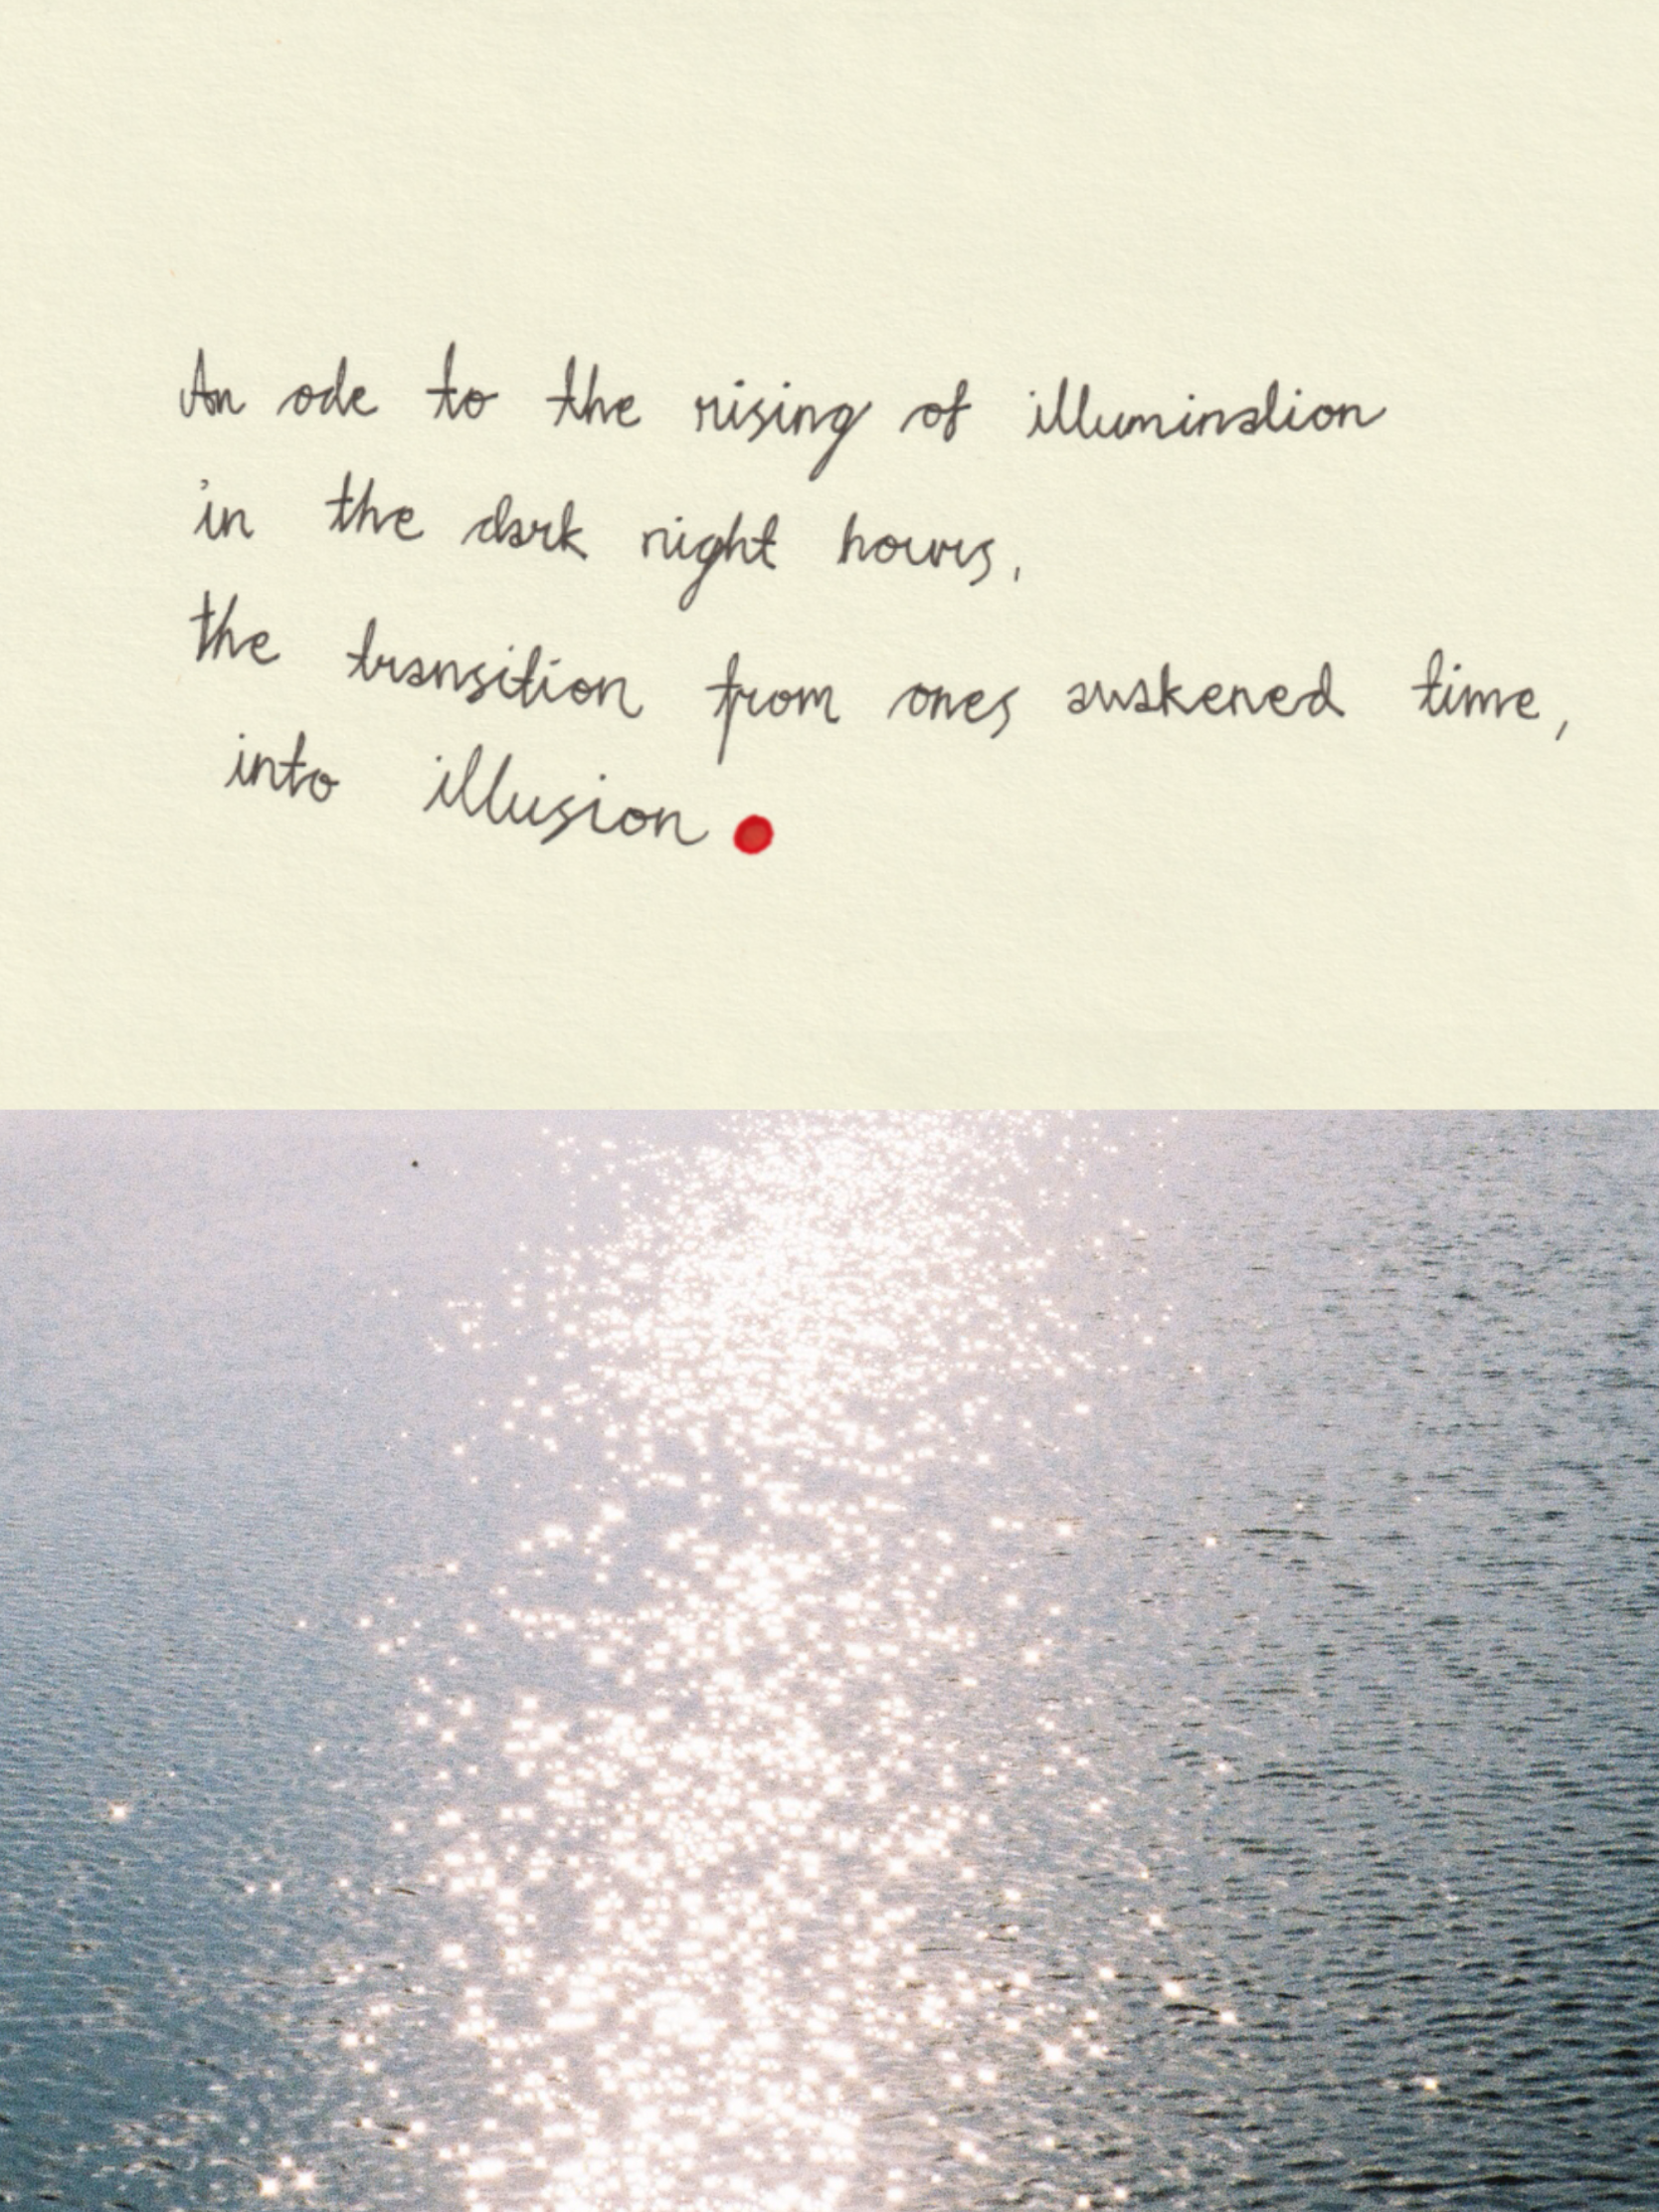 An ode to the rising of illumination
in the dark night hours,
the transition from ones awakened time,
into illusion.